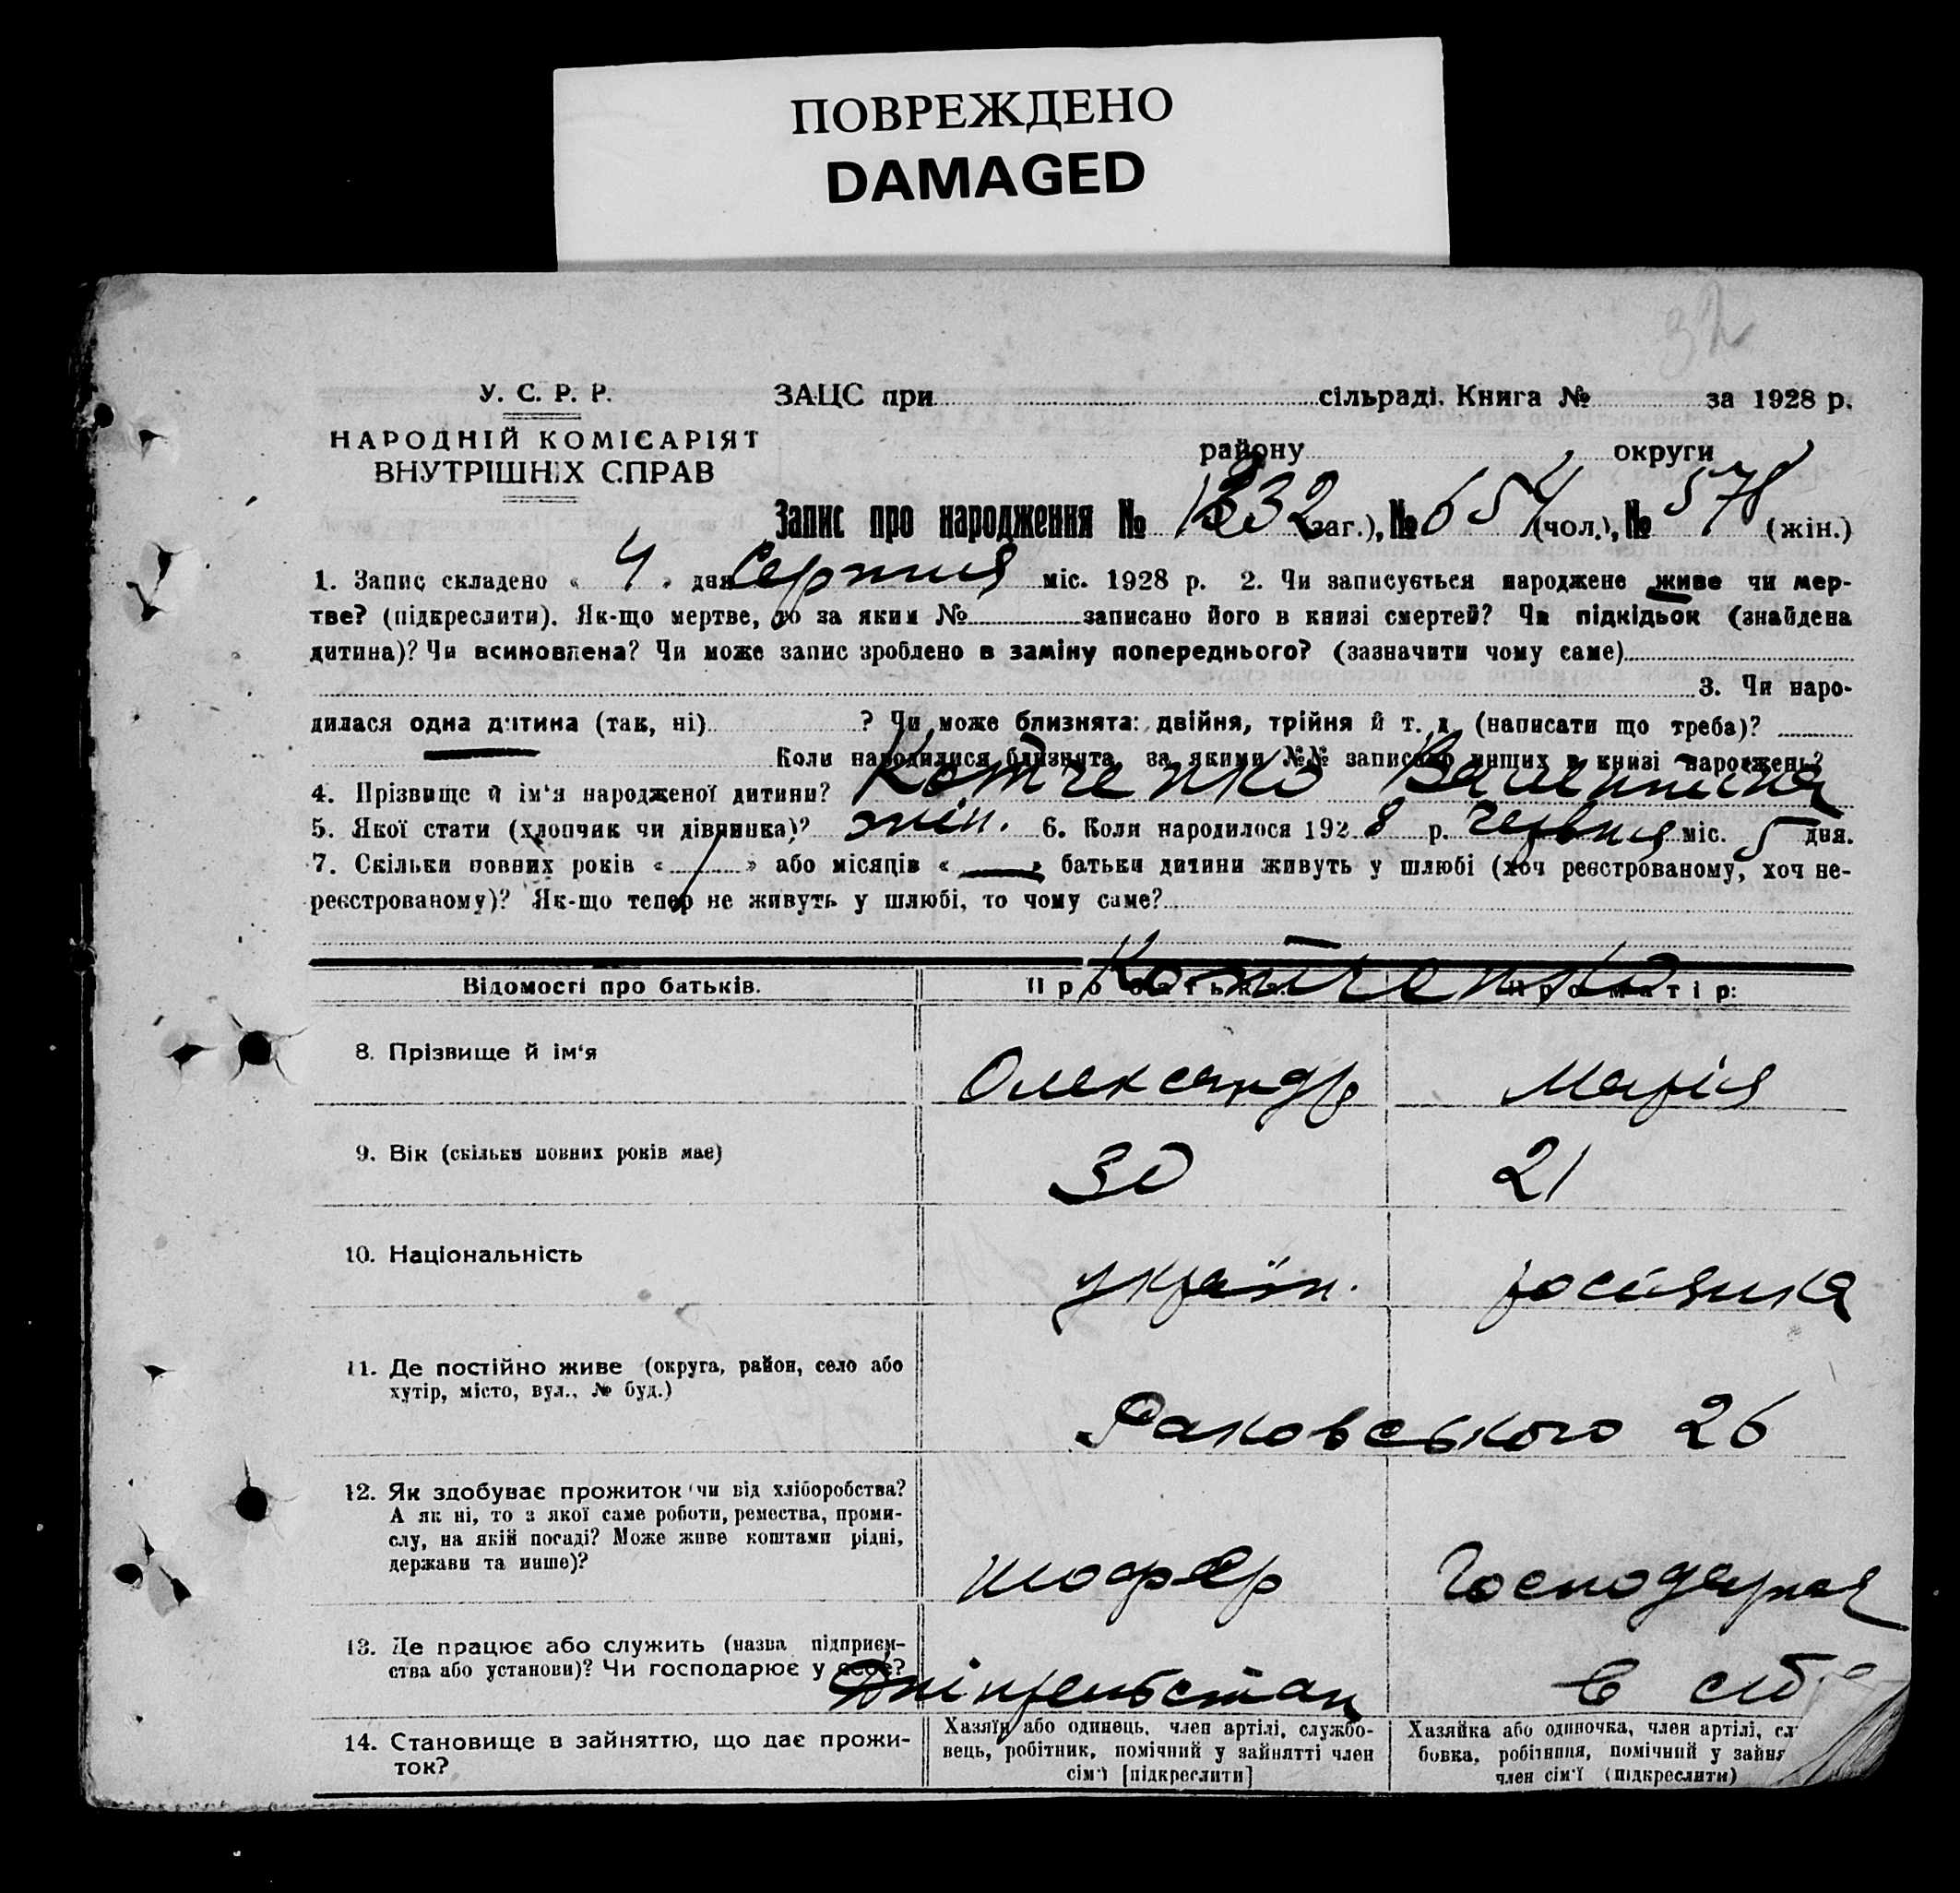 ПОВРЕЖДЕНО
DAMAGED
32
У. С. Р. Р.
НАРОДНІЙ КОМІСАРІЯТ
ВНУТРІШНІХ СПРАВ
ЗАЦС при сільраді. Книга № за 1928 р.
району округи
Запис про народження № 1232 (заг.), № 654 (чол.), № 578 (жін.)
1. Запис складено « 4 » дня Серпня міс. 1928 р. 2. Чи записується народжене живе чи мер-
тве? (підкреслити). Як-що мертве, то за яким № записано його в книзі смертей? Чи підкідьок (знайдена
дитина)? Чи всиновлена? Чи може запис зроблено в заміну попереднього? (зазначити чому саме)
3. Чи наро-
дилася одна дитина (так, ні) ? Чи може близнята: двійня, трійня й т. д. (написати що треба)?
Коли народилися близнята, за якими №№ записано инших в книзі народжень?
4. Прізвище й ім'я народженої дитини? Котченко Валентина
5. Якої стати (хлопчик чи дівчинка)? жін. 6. Коли народилося 1928 р. червня міс. 5 дня.
7. Скільки повних років « » або місяців « — » батьки дитини живуть у шлюбі (хоч реєстрованому, хоч не-
реєстрованому)? Як-що тепер не живуть у шлюбі, то чому саме?
Котченко
Відомості про батьків. Про батька: Про матір:
8. Прізвище й ім'я Олександр Марія
9. Вік (скільки повних років має) 30 21
10. Національність україн. росіянка
11. Де постійно живе (округа, район, село або
хутір, місто, вул., № буд.)
Раковського 26
12. Як здобуває прожиток чи від хліборобства?
А як ні, то з якої саме роботи, ремества, проми-
слу, на якій посаді? Може живе коштами рідні,
держави та инше)?
шофер Господарка
13. Де працює або служить (назва підприєм-
ства або установи)? Чи господарює у себе?
в себе
14. Становище в зайняттю, що дає прожи-
ток?
Хазяїн або одинець, член артілі, службо-
вець, робітник, помічний у зайнятті член
сім'ї [підкреслити]
Хазяйка або одиночка, член артілі, сл
бовка, робітниця, помічний у зайня
член сім'ї (підкреслити)